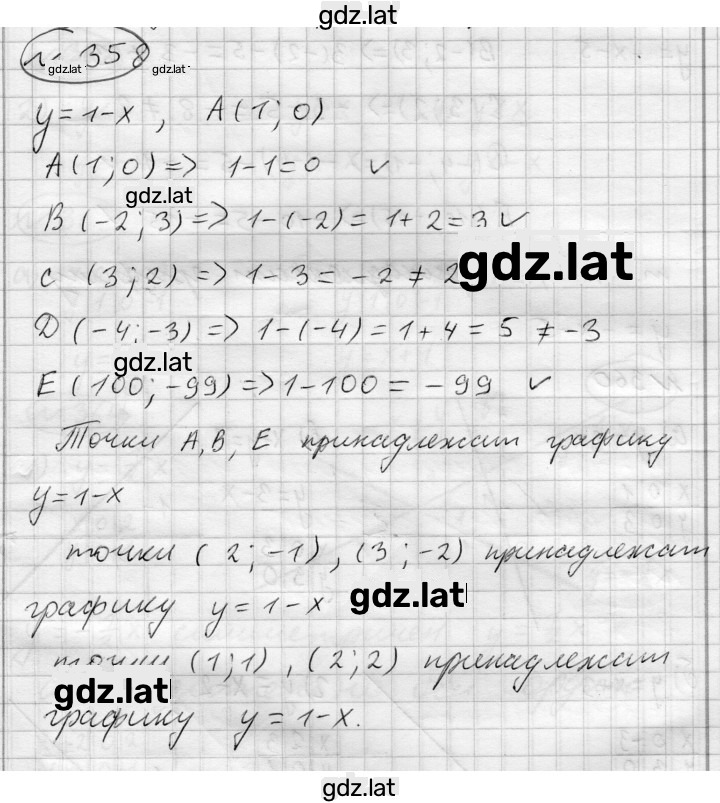 gdz.lat
№ 358
gdz.lat gdz.lat
y = 1 - x , A (1 ; 0)
A (1 ; 0) => 1 - 1 = 0 ✓
gdz.lat
B (-2 ; 3) => 1 - (-2) = 1 + 2 = 3 ✓
gdz.lat
C (3 ; 2) => 1 - 3 = -2 ≠ 2
D (-4 ; -3) => 1 - (-4) = 1 + 4 = 5 ≠ -3
gdz.lat
E (100 ; -99) => 1 - 100 = -99 ✓
Точки A, B, E принадлежат графику
y = 1 - x
точки (2 ; -1) , (3 ; -2) принадлежат
графику y = 1 - x
gdz.lat
точки (1 ; 1) , (2 ; 2) принадлежат
gdz.lat
графику y = 1 - x.
gdz.lat